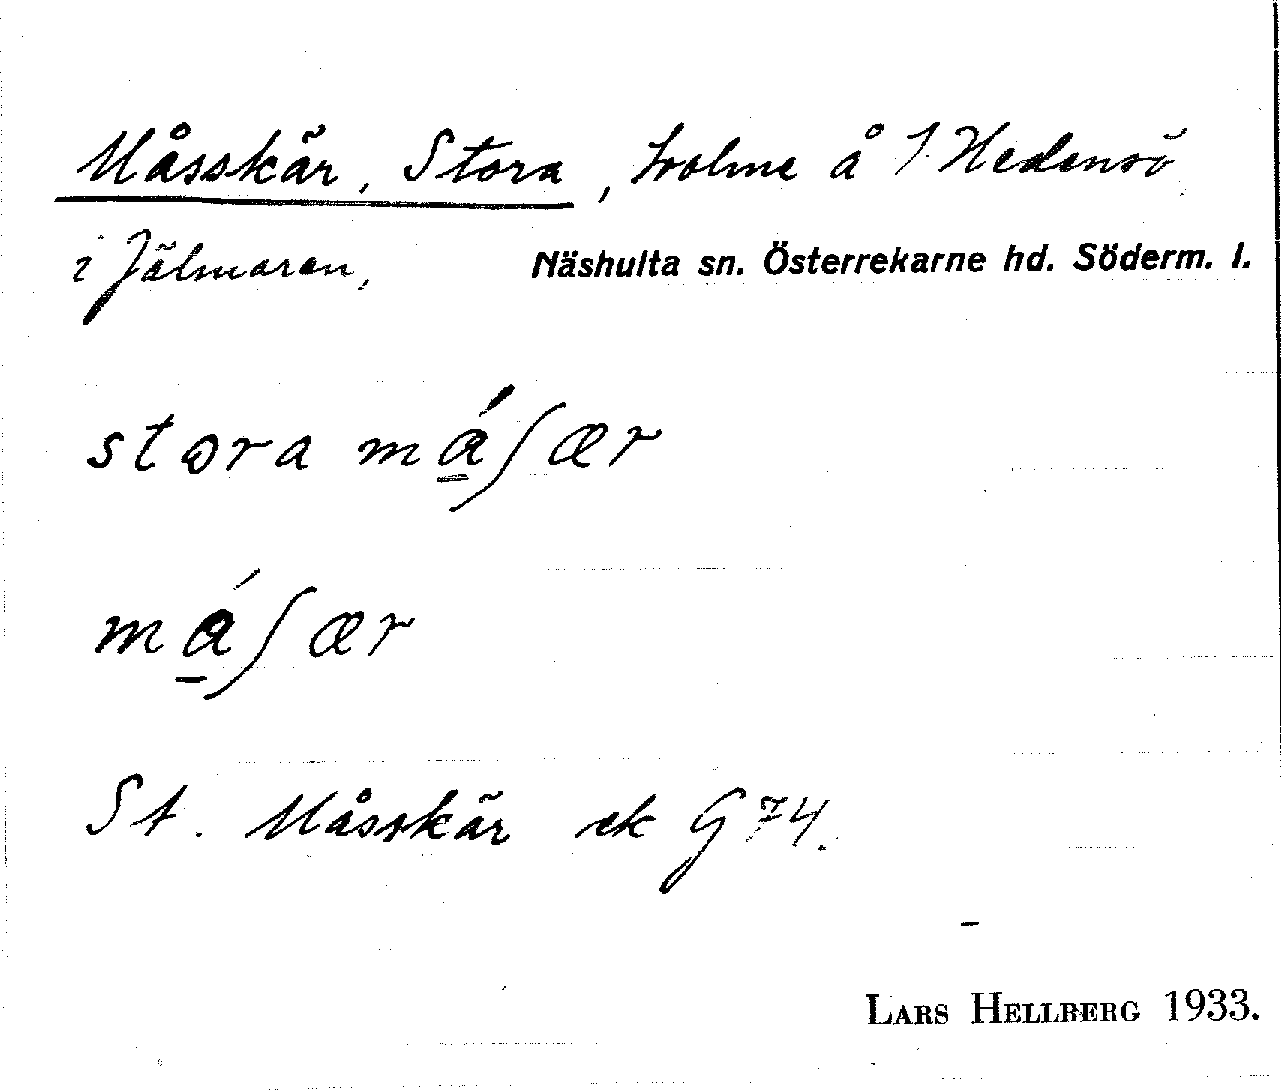 Måsskär, Stora, holme å 1 Hedensö
i Jälmaren, Näshulta sn. Österrekarne hd. Söderm. l.
stora má̱ʃær
má̱ʃær
St. Måsskär ek G 74.
LARS HELLBERG 1933.